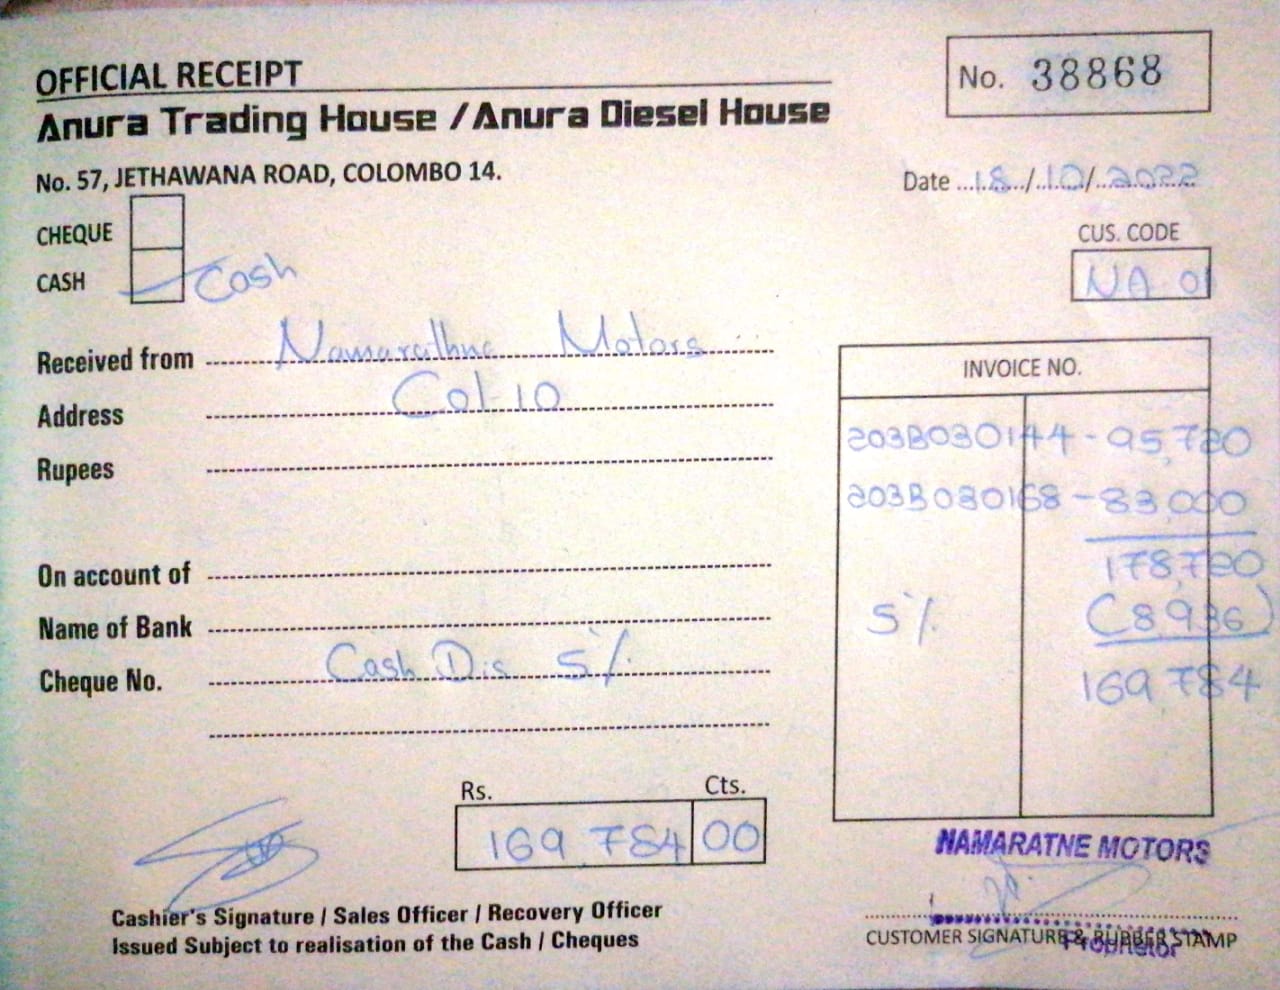 OFFICIAL RECEIPT
No. 38868
Anura Trading House / Anura Diesel House
No. 57, JETHAWANA ROAD, COLOMBO 14.
Date 18/10/2022
CHEQUE
CUS. CODE
CASH Cash
NA 01
Received from Namarathne Motors
INVOICE NO.
Address Col-10
203B030144 - 95,720
Rupees
203B030168 - 83,000
178,720
On account of
5% (8,936)
Name of Bank
169,784
Cheque No. Cash Dis 5%
Rs. Cts.
169,784 00
NAMARATNE MOTORS
Cashier's Signature / Sales Officer / Recovery Officer
Issued Subject to realisation of the Cash / Cheques
CUSTOMER SIGNATURE & RUBBER STAMP
Proprietor